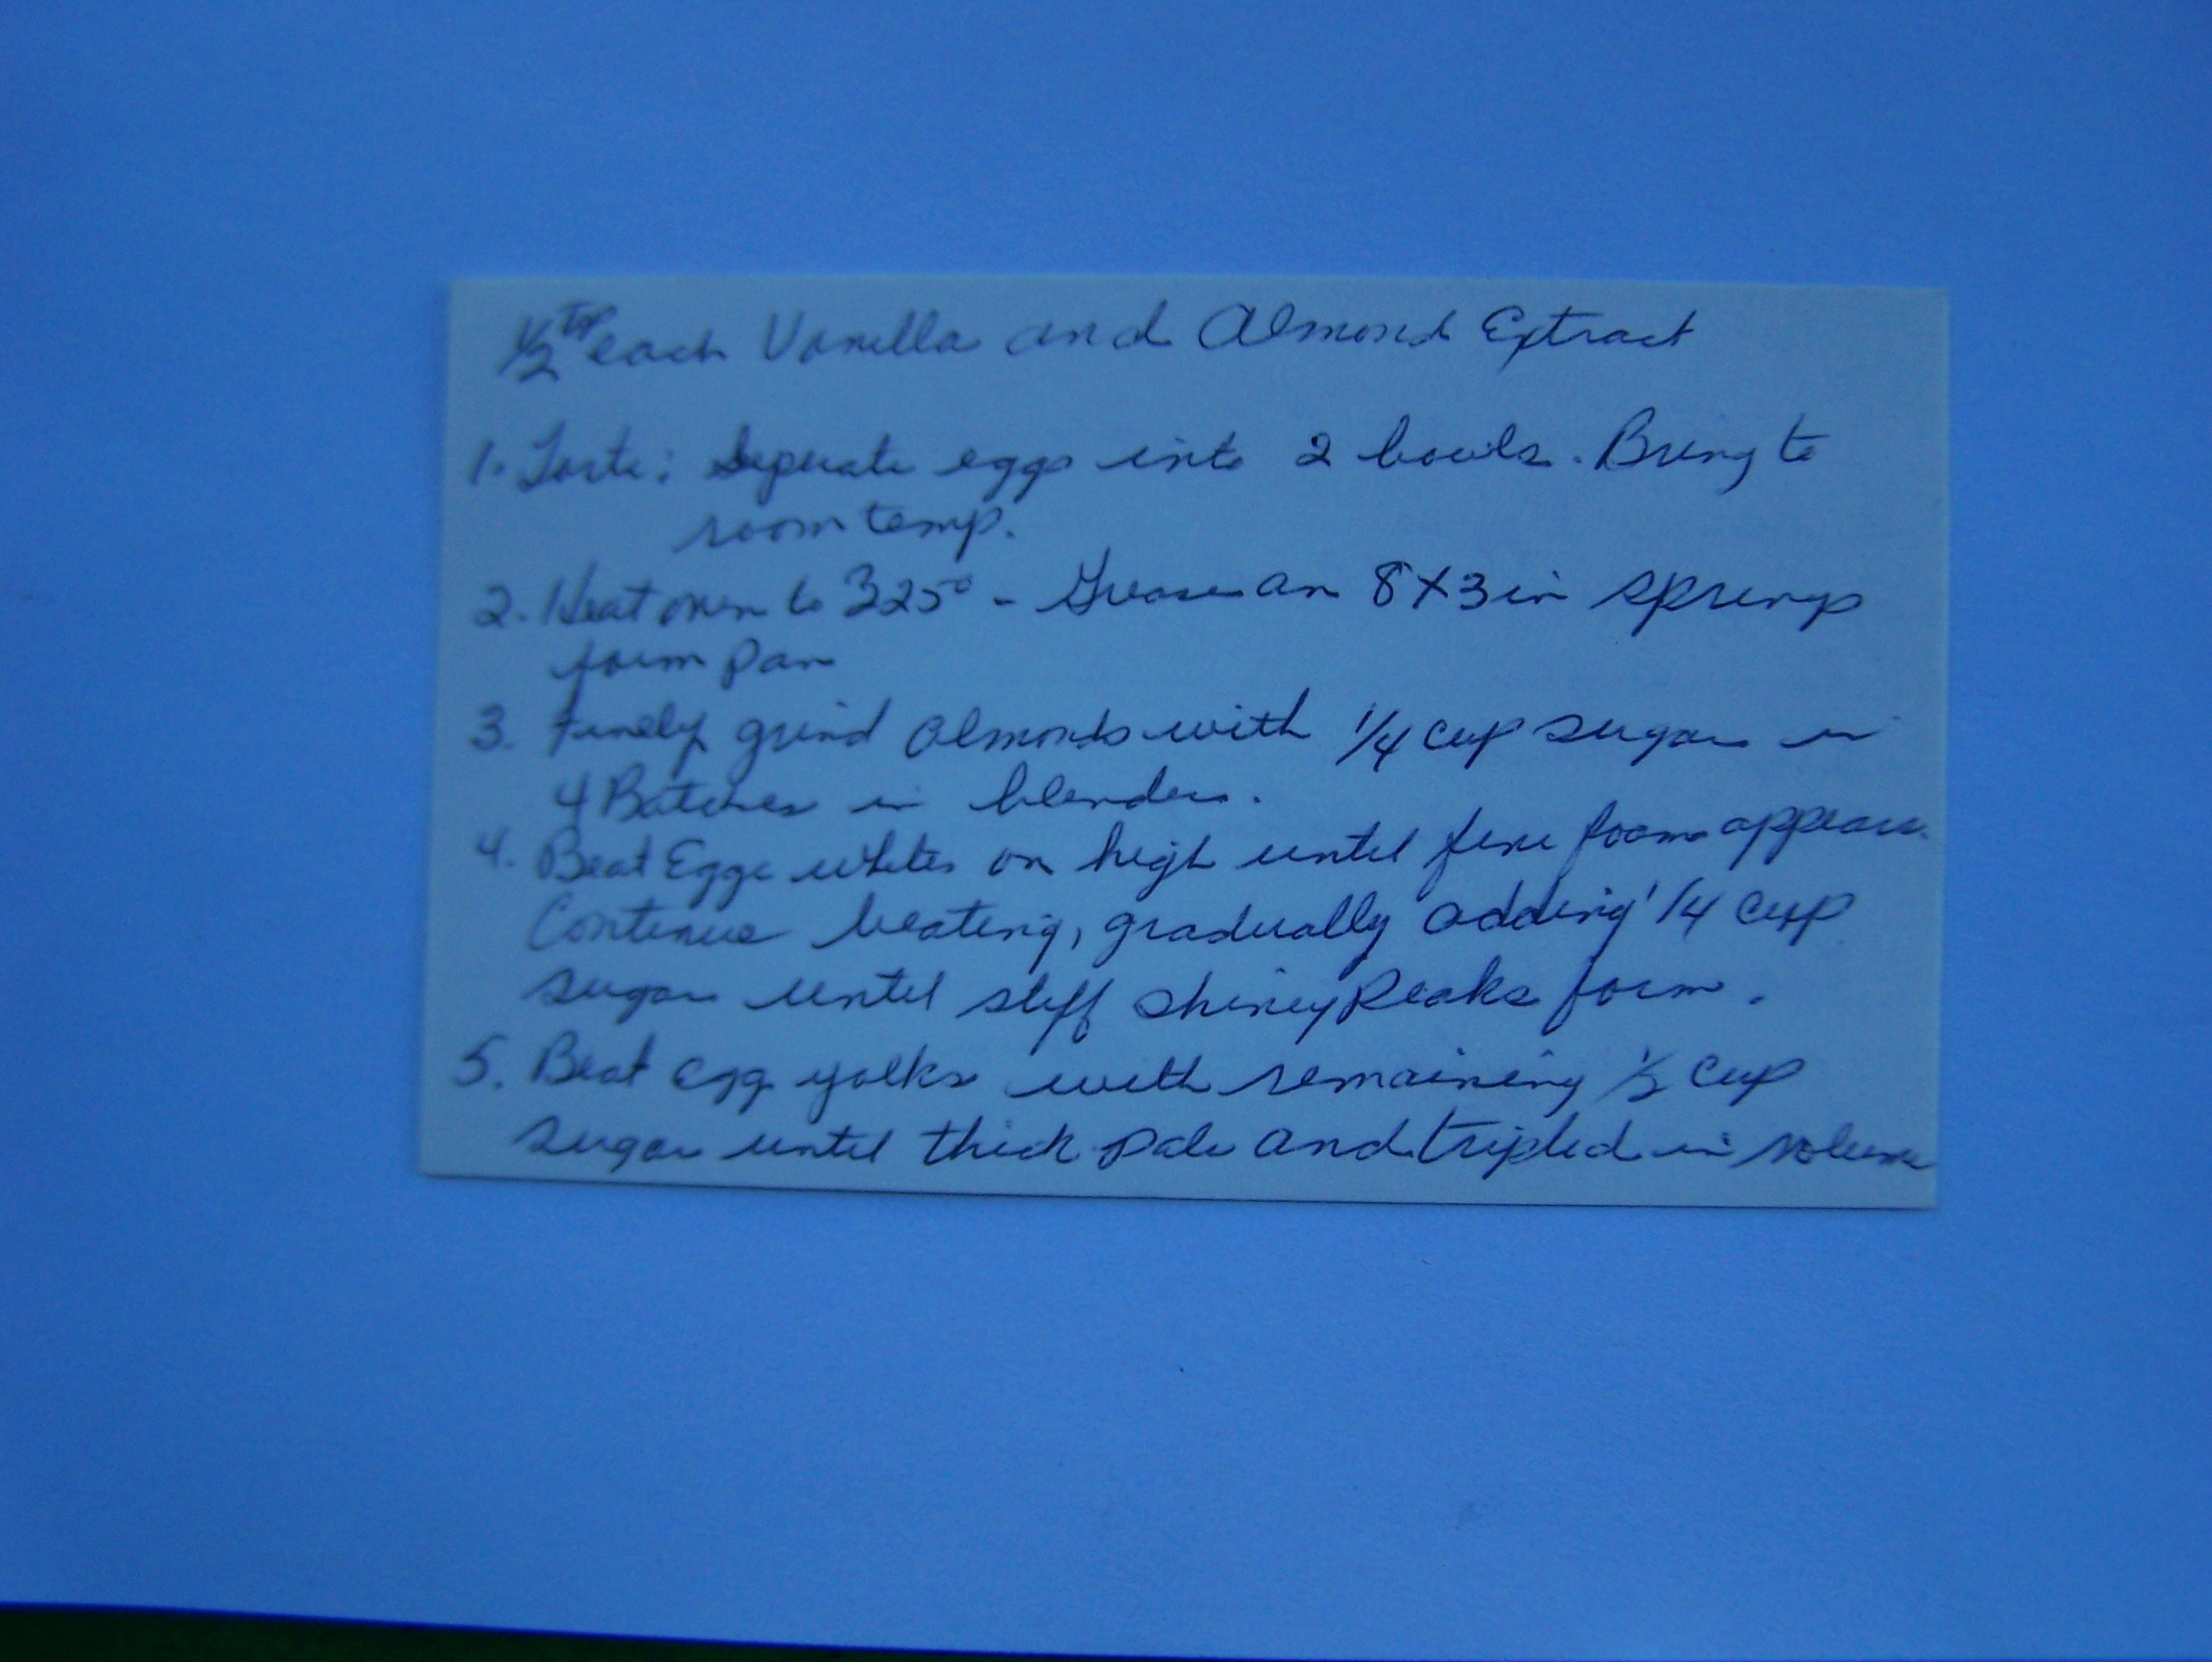 1/2 tsp each Vanilla and Almond Extract
1. Torte: Seperate eggs into 2 bowls. Bring to
room temp.
2. Heat oven to 325° - Grease an 8X3 in spring
form pan
3. Finely grind almonds with 1/4 cup sugar in
4 Batches in blender.
4. Beat Egg whites on high until fine foam appears.
Continue beating, gradually adding 1/4 cup
sugar until stiff shiney peaks form.
5. Beat egg yolks with remaining 1/2 cup
sugar until thick pale and tripled in volume